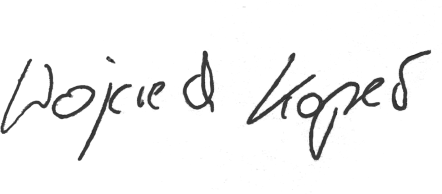 Wojciech Kopeć